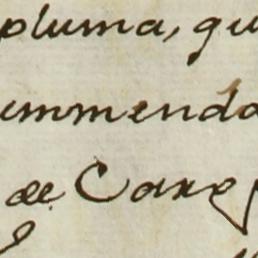 pluma, qu
ummenda
de Carog